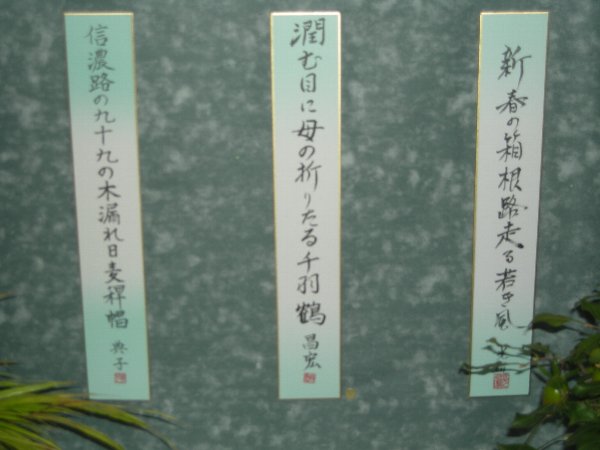 新春の箱根路走る若き風
潤む目に母の折りたる千羽鶴 昌宏
信濃路の九十九の木漏れ日麦稈帽 典子